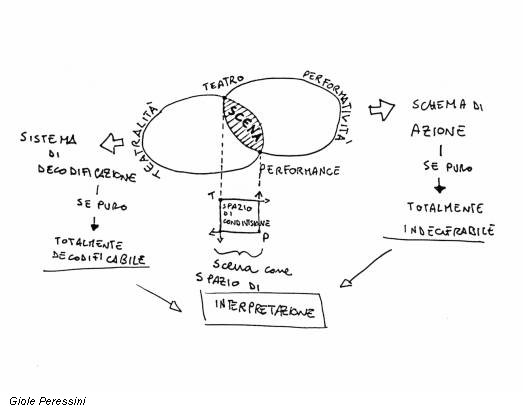 TEATRO
PERFORMATIVITÀ
TEATRALITÀ
SCENA
PERFORMANCE
SISTEMA
DI
DECODIFICAZIONE
SE PURO
TOTALMENTE
DECODIFICABILE
SCHEMA DI
AZIONE
SE PURO
TOTALMENTE
INDECIFRABILE
T
SPAZIO
DI
CONDIVISIONE
P
Scena come
SPAZIO DI
INTERPRETAZIONE
Gioie Peressini